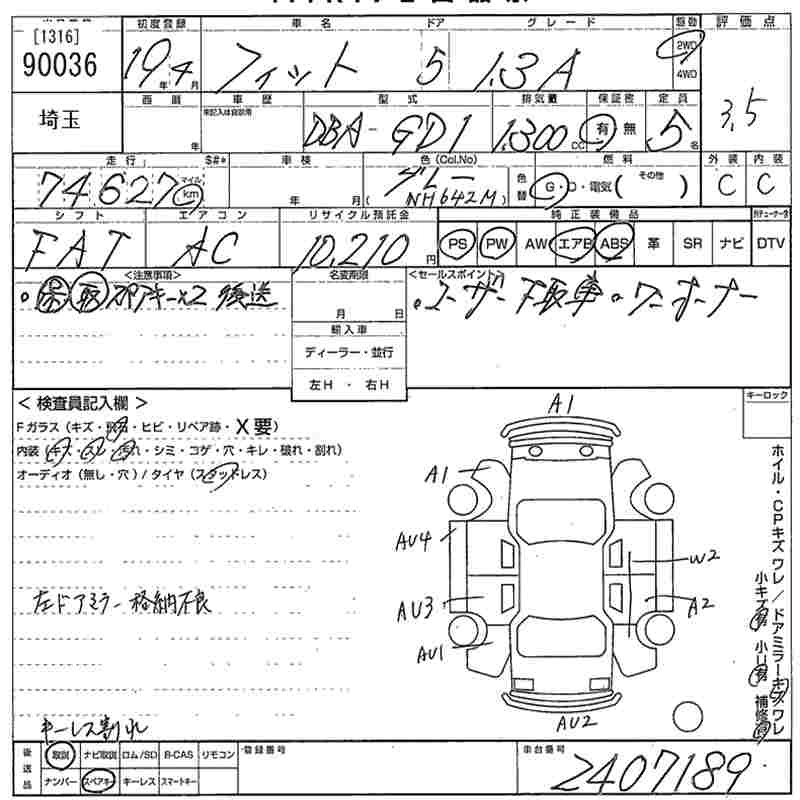 [1316]
90036
初度登録 車名 ドア グレード 駆動 評価点
19年4月 フィット 5 1.3A 2WD 4WD 3.5
埼玉
西暦 車歴 型式 排気量 保証書 定員
年 未記入は自家用 DBA-GD1 1300cc 有・無 5名
走行 S#* 車検 色(Col.No) 燃料 外装 内装
74627 マイル km 年 月 グレー (NH642M) 色替 G・D・電気( その他 ) C C
シフト エアコン リサイクル預託金 純正装備品
FAT AC 10,210円 PS PW AW エアB ABS 革 SR ナビ DTV
<注意事項> 名変期限 <セールスポイント>
。保 取 スペアキーx2 後送 月 日 。ユーザー下取車 。ワンオーナー
輸入車
ディーラー・並行
左H ・ 右H
< 検査員記入欄 > キーロック
Fガラス (キズ・ ・ヒビ・リペア跡・X要)
内装 (キズ・スレ・汚れ・シミ・コゲ・穴・キレ・破れ・割れ)
オーディオ (無し・穴) / タイヤ (スタッドレス)
A1
A1
AU4
W2
AU3
A2
AU1
AU2
左ドアミラー格納不良
キーレス割れ
ホイル・CPキズ ワレ / ドアミラーキズ ワレ
小キズ有 小U有 補修有
後送品 取説 ナビ取説 ロム/SD B-CAS リモコン 登録番号 車台番号
ナンバー スペアキー キーレス スマートキー 2407189